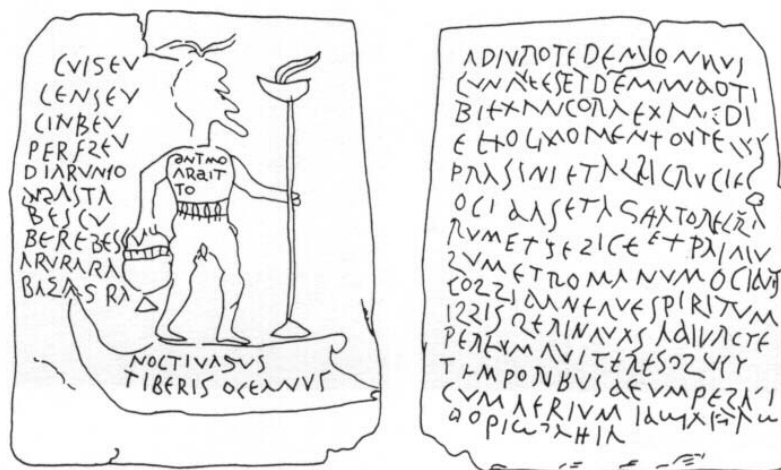 CVIGEV
CENSEV
CINBEV
PERFLEV
DIARVNCO
DEASTA
BESCV
BEREBESCV
ARVRARA
BAGAGRA
ANTMO
ARAIT
TO
NOCTIVAGVS
TIBERIS OCEANVS
ADIVRO TE DEMON QVI
CVNQVE ES ET DEMANDO TI
BI EX ANC ORA EX ANC DI
E EX OC MOMENTO VT EQVOS
PRASINI ET ALBI CRVCIES
OCIDAS ET AGITATORE CLA
RVM ET FELICE ET PRIMV
LVM ET ROMANVM OCIDAS
COLLIDA NEQVE SPIRITVM
ILLIS LERINQVAS ADIVRO TE
PER EVM QVI TE RESOLVIT
TEMPORIBVS DEVM PELAGI
CVM AERIVM